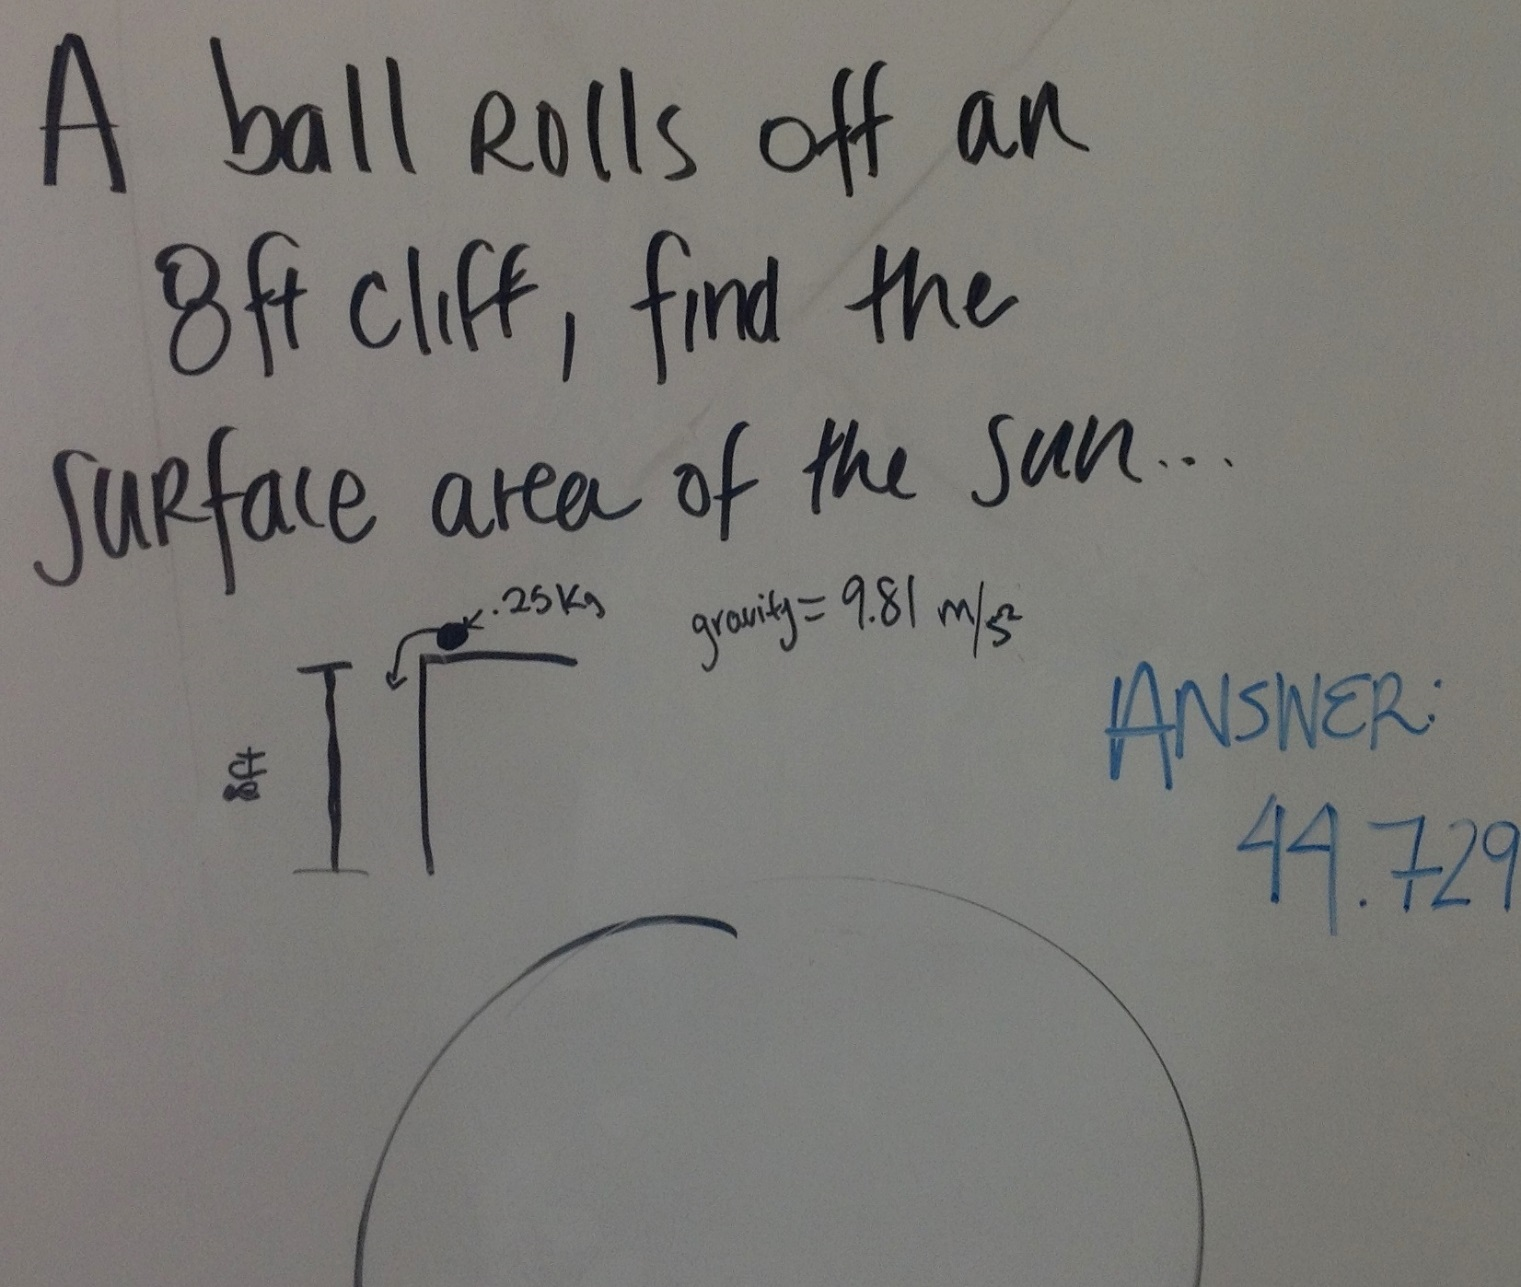 A ball Rolls off an
8ft cliff, find the
surface area of the sun...
.25Kg
gravity= 9.81 m/s²
8ft
ANSWER:
44.729